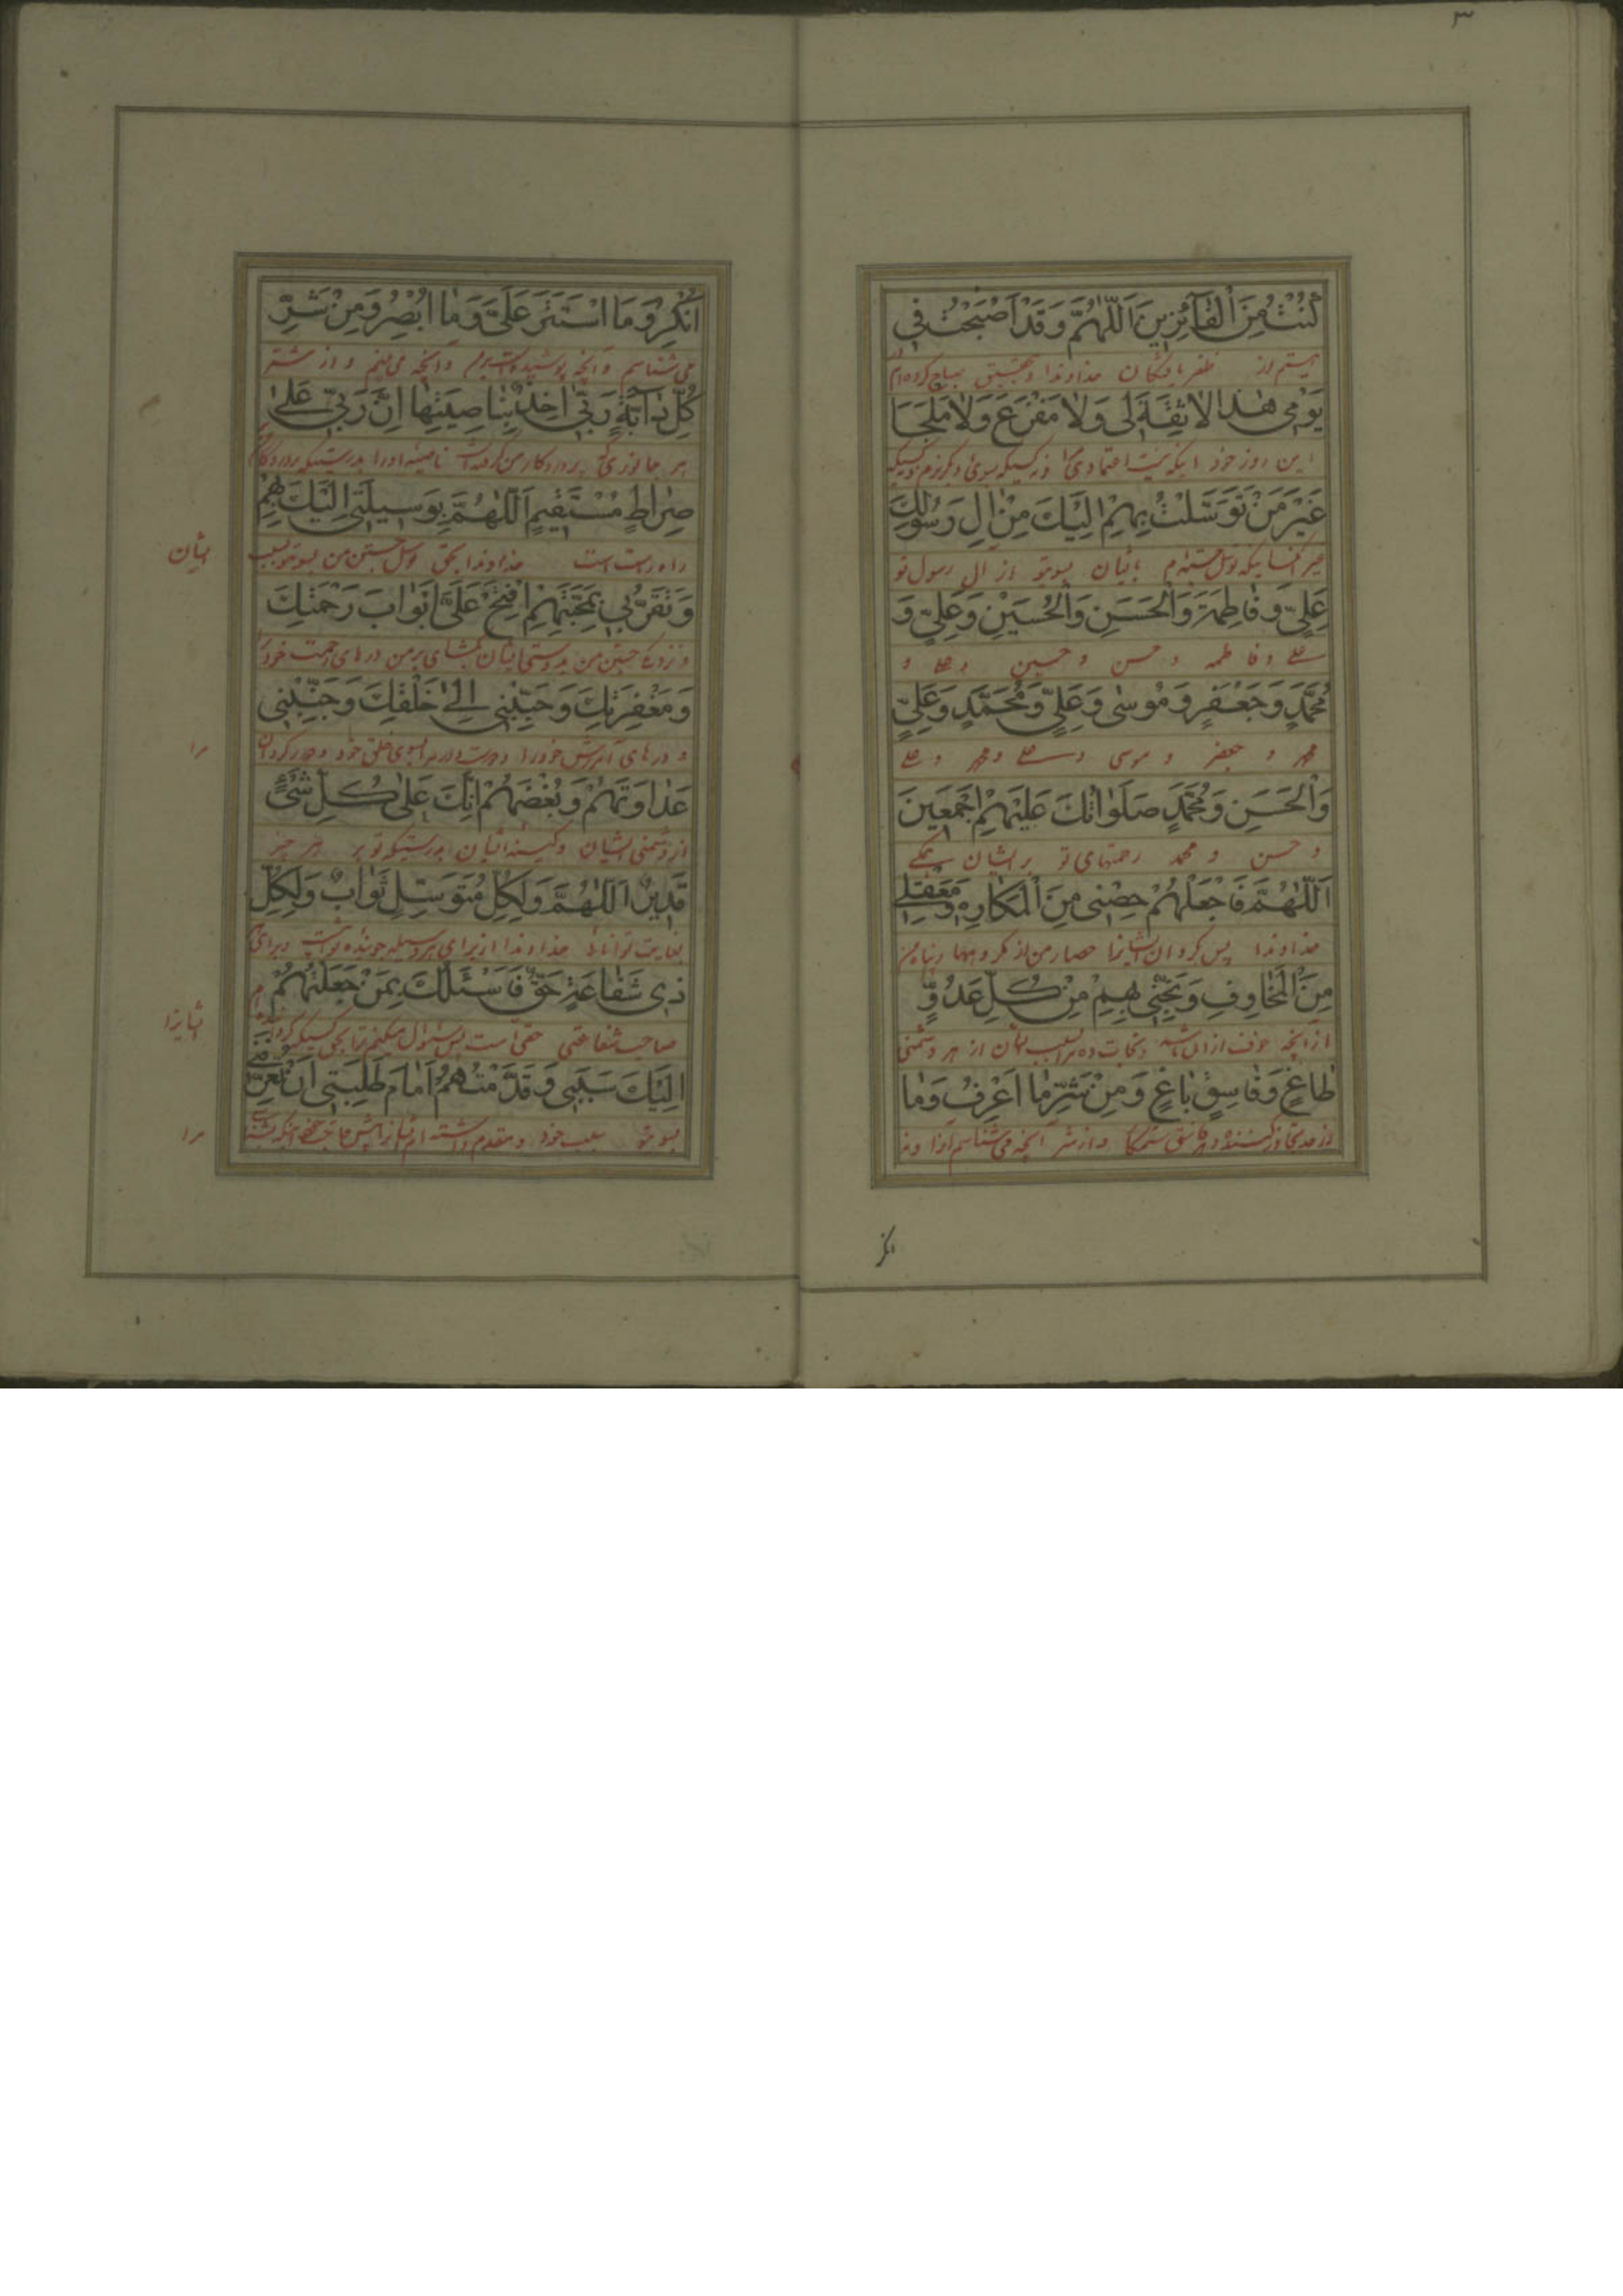 ٣
كُنْتُ مِنَ الْفَآئِزِينَ اَللّٰهُمَّ وَقَدْ اَصْبَحْتُ فِي
هستم از ظفر یافتگان خداوندا و بتحقیق صباح کرده‌ام
يَوْمِي هٰذَا لَا ثِقَةَ لِي وَلَا مَفْزَعَ وَلَا مَلْجَأَ
این روز خود اینکه نیست اعتمادی
غَيْرَ مَنْ تَوَسَّلْتُ بِهِمْ اِلَيْكَ مِنْ اٰلِ رَسُولِكَ
بایشان بسوی تو از آل رسول تو
عَلِيٍّ وَفَاطِمَةَ وَالْحَسَنِ وَالْحُسَيْنِ وَعَلِيٍّ وَ
علی و فاطمه و حسن و حسین و علی و
مُحَمَّدٍ وَجَعْفَرٍ وَمُوسٰى وَعَلِيٍّ وَمُحَمَّدٍ وَعَلِيٍّ
محمد و جعفر و موسی و علی و محمد و علی
وَالْحَسَنِ وَمُحَمَّدٍ صَلَوٰاتُكَ عَلَيْهِمْ اَجْمَعِينَ
و حسن و محمد رحمتهای تو بر ایشان همگی
اَللّٰهُمَّ فَاجْعَلْهُمْ حِصْنِي مِنَ الْمَكَارِهِ وَمَعْقِلِي
خداوندا پس کردان ایشانرا حصار من از مکروهها و پناه من
مِنَ الْمَخَاوِفِ وَنَجِّنِي بِهِمْ مِنْ كُلِّ عَدُوٍّ
از آنچه خوف از آن باشد و نجات ده مرا بسبب ایشان از هر دشمنی
طَاغٍ وَفَاسِقٍ بَاغٍ وَمِنْ شَرِّ مَا اَعْرِفُ وَمَا
و از شر آنچه می‌شناسم
انکر
اُنْكِرُ وَمَا اسْتَتَرَ عَلَيَّ وَمَا اُبْصِرُ وَمِنْ شَرِّ
می‌شناسم و آنچه پوشیده است برمن و آنچه می‌بینم و از شر
كُلِّ دَآبَّةٍ رَبِّي اٰخِذٌ بِنَاصِيَتِهَا اِنَّ رَبِّي عَلٰى
هر جانوری که پروردکار من گرفته است ناصیه او را بدرستیکه پروردکار
صِرَاطٍ مُسْتَقِيمٍ اَللّٰهُمَّ بِوَسِيلَتِي اِلَيْكَ بِهِمْ
راه راست است خداوندا بحق توسل جستن من بسوی تو بسبب
ایشان
وَتَقَرُّبِي بِمَحَبَّتِهِمْ اِفْتَحْ عَلَيَّ اَبْوَابَ رَحْمَتِكَ
و نزدیکی جستن من بدوستی ایشان بگشای بر من درهای رحمت خود را
وَمَغْفِرَتِكَ وَحَبِّبْنِي اِلٰى خَلْقِكَ وَجَنِّبْنِي
و درهای آمرزش خود را و دوست دار مرا بسوی خلق خود و دور کردان
مرا
عَدَاوَتَهُمْ وَبُغْضَهُمْ اِنَّكَ عَلٰى كُلِّ شَيْءٍ
از دشمنی ایشان و کینه ایشان بدرستیکه تو بر هر چیز
قَدِيرٌ اَللّٰهُمَّ وَلِكُلِّ مُتَوَسِّلٍ ثَوَابٌ وَلِكُلِّ
بغایت توانائی خداوندا از برای هر وسیله جوینده ثوابست و برای
ذِي شَفَاعَةٍ حَقٌّ فَاَسْئَلُكَ بِمَنْ جَعَلْتُهُمْ
صاحب شفاعتی حقی است پس سئوال میکنم ترا بحق کسیکه
ایشانرا
اِلَيْكَ سَبَبِي وَقَدَّمْتُهُمْ اَمَامَ طَلِبَتِي اَنْ تُعَرِّفَنِي
بسوی تو سبب خود و مقدم داشته ام ایشانرا پیش
مرا